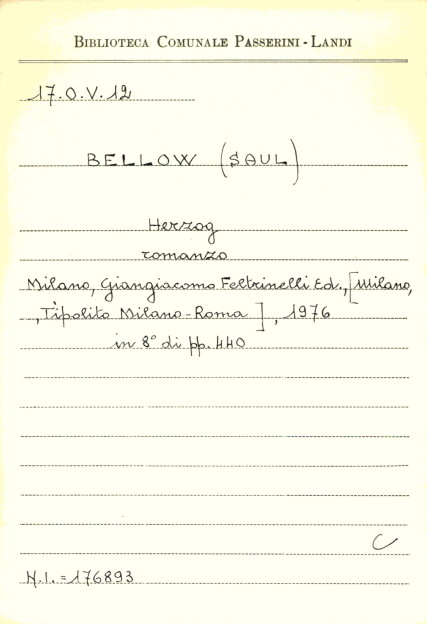 BIBLIOTECA COMUNALE PASSERINI - LANDI
17.O.V.12
BELLOW (SAUL)
Herzog
romanzo
Milano, Giangiacomo Feltrinelli Ed., [Milano,
, Tipolito Milano - Roma ], 1976
in 8° di pp. 440
C
N.I. = 176893